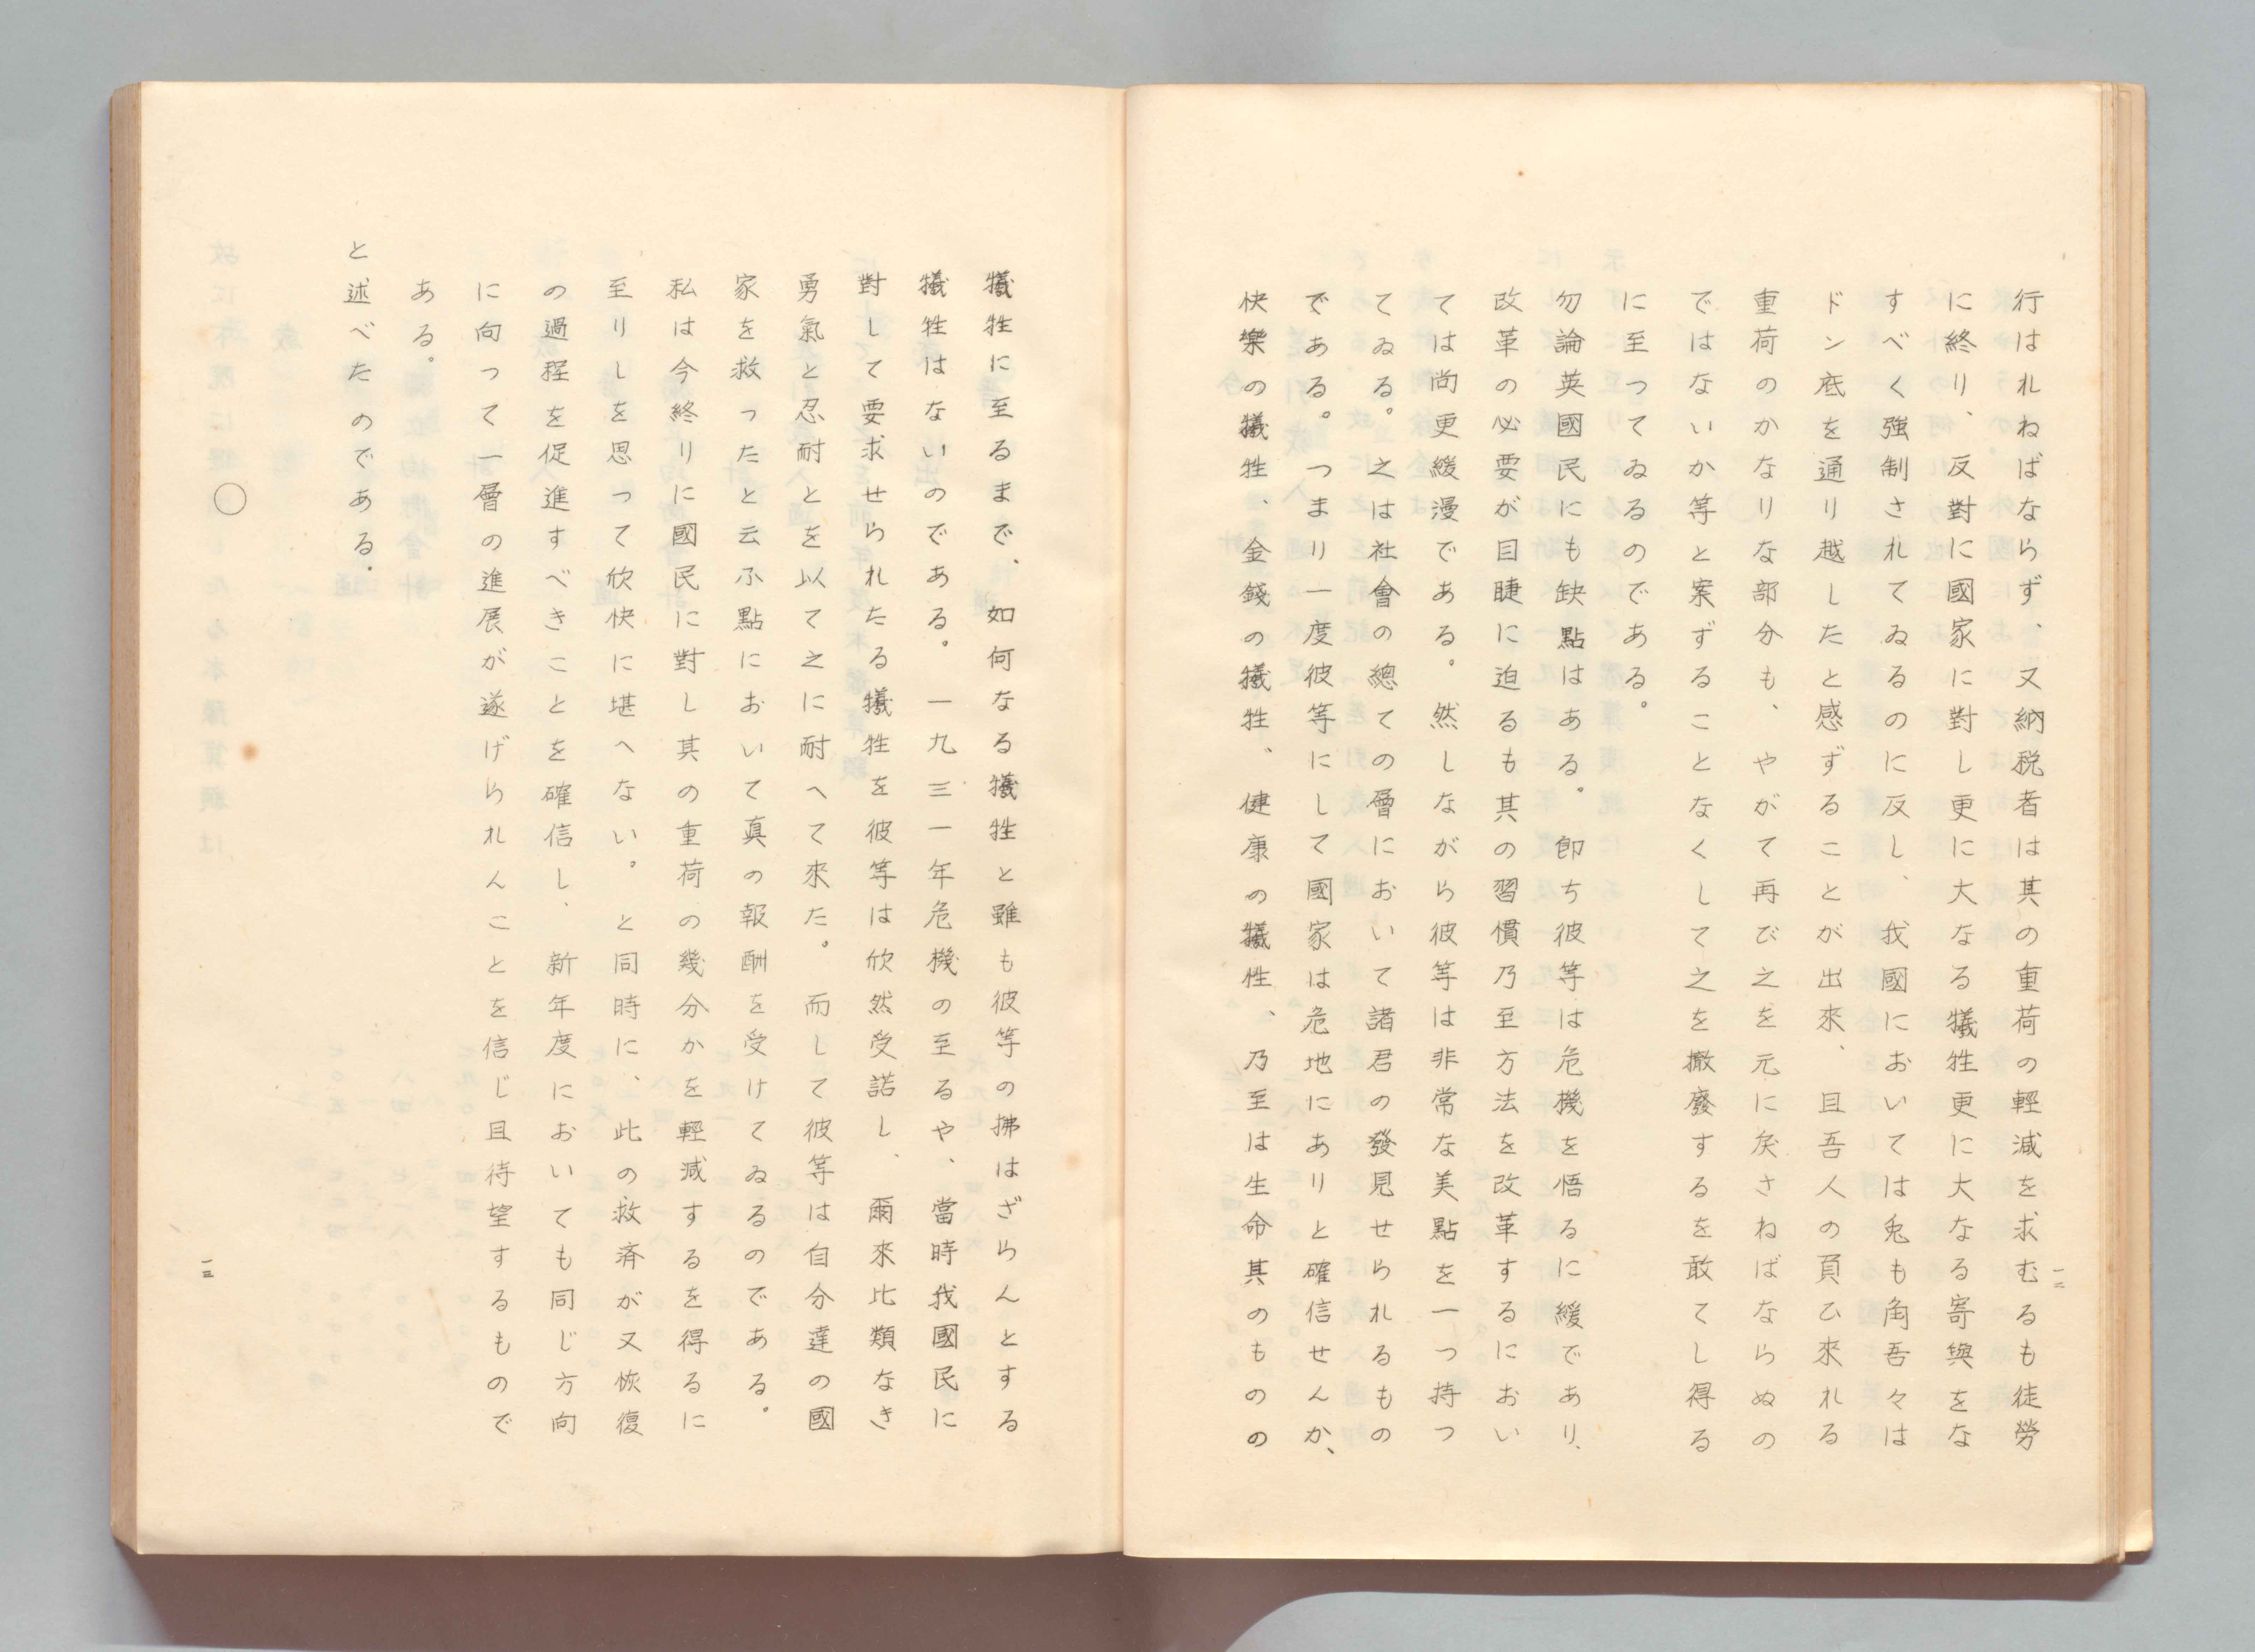 行はれねばならず、又納税者は其の重荷の輕減を求むるも徒勞
に終り、反對に國家に對し更に大なる犠牲更に大なる寄與をな
すべく強制されてゐるのに反し、我國においては兎も角吾々は
ドン底を通り越したと感ずることが出來、且吾人の負ひ來れる
重荷のかなりな部分も、やがて再び之を元に戻さねばならぬの
ではないか等と案ずることなくして之を撤廢するを敢てし得る
に至つてゐるのである。
勿論英國民にも缺點はある。卽ち彼等は危機を悟るに緩であり、
改革の必要が目睫に迫るも其の習慣乃至方法を改革するにおい
ては尚更緩漫である。然しながら彼等は非常な美點を一つ持つ
てゐる。之は社會の總ての層において諸君の發見せられるもの
である。つまり一度彼等にして國家は危地にありと確信せんか、
快樂の犠牲、金錢の犠牲、健康の犠牲、乃至は生命其のものの
一二
犠牲に至るまで、如何なる犠牲と雖も彼等の拂はざらんとする
犠牲はないのである。一九三一年危機の至るや、當時我國民に
對して要求せられたる犠牲を彼等は欣然受諾し、爾來比類なき
勇氣と忍耐とを以て之に耐へて來た。而して彼等は自分達の國
家を救つたと云ふ點において真の報酬を受けてゐるのである。
私は今終りに國民に對し其の重荷の幾分かを輕減するを得るに
至りしを思つて欣快に堪へない。と同時に、此の救済が又恢復
の過程を促進すべきことを確信し、新年度においても同じ方向
に向つて一層の進展が遂げられんことを信じ且待望するもので
ある。
と述べたのである。
○
一三